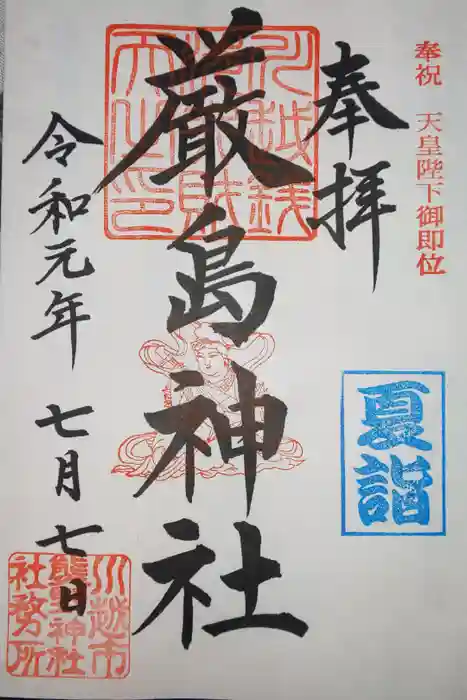 奉祝 天皇陛下御即位
奉拝
厳島神社
令和元年 七月 七日
夏詣
川越市
熊野神社
社務所